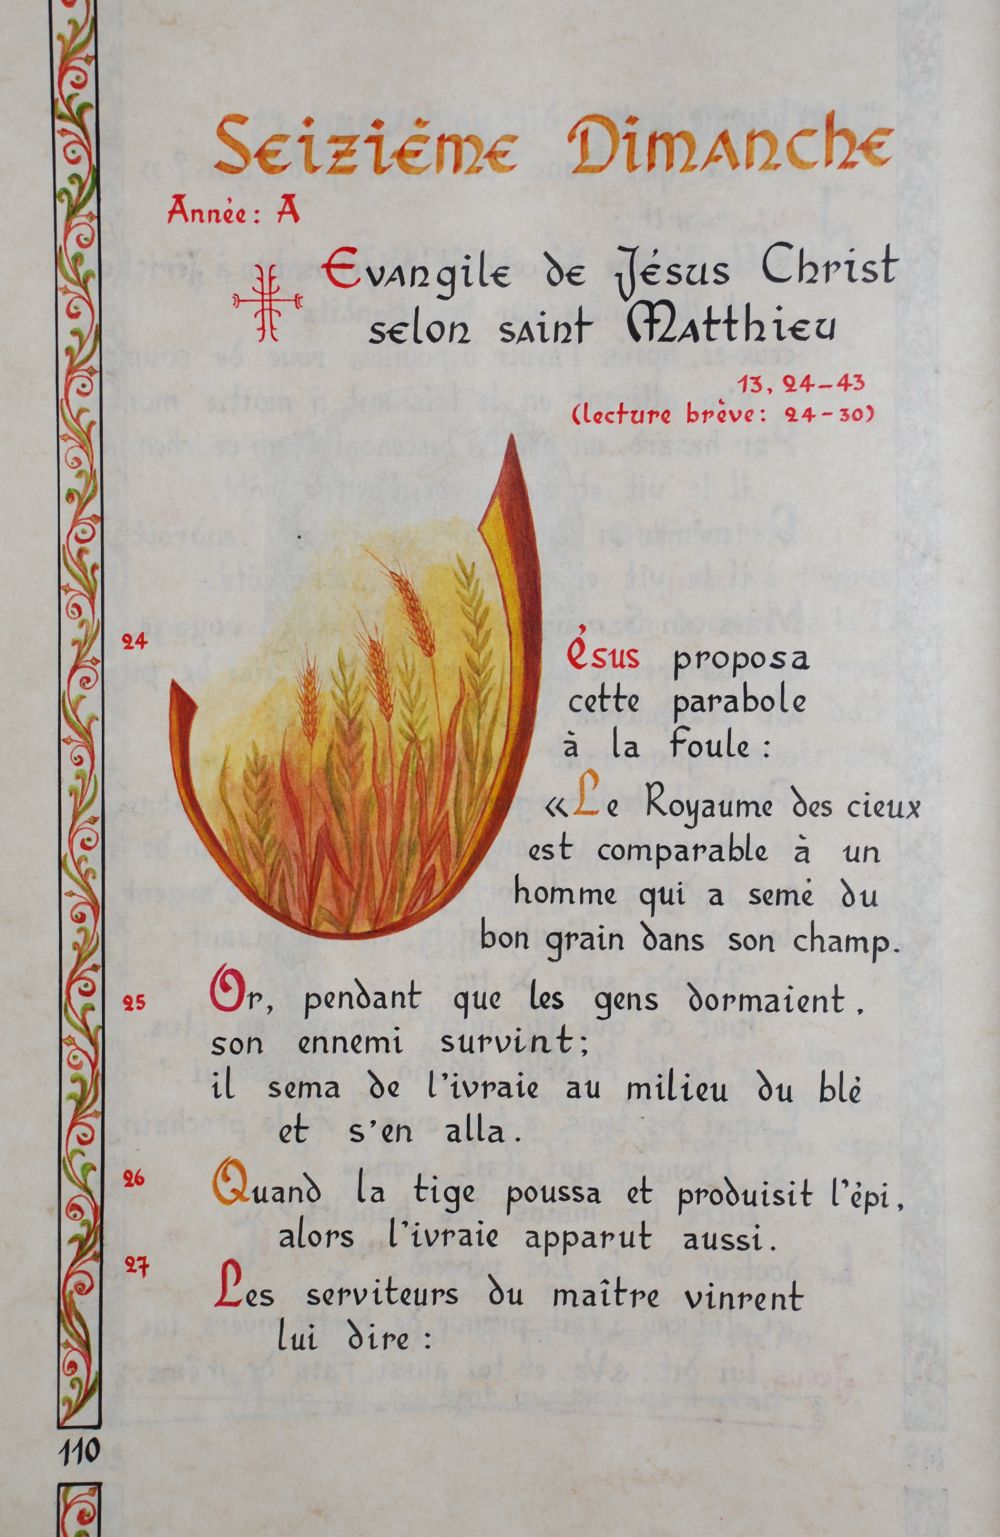 Seizième Dimanche
Année: A
Evangile de Jésus Christ
selon saint Matthieu
13, 24-43
(lecture brève: 24-30)
24
Jésus proposa
cette parabole
à la foule :
«Le Royaume des cieux
est comparable à un
homme qui a semé du
bon grain dans son champ.
25
Or, pendant que les gens dormaient,
son ennemi survint;
il sema de l'ivraie au milieu du blé
et s'en alla.
26
Quand la tige poussa et produisit l'épi,
alors l'ivraie apparut aussi.
27
Les serviteurs du maître vinrent
lui dire :
110